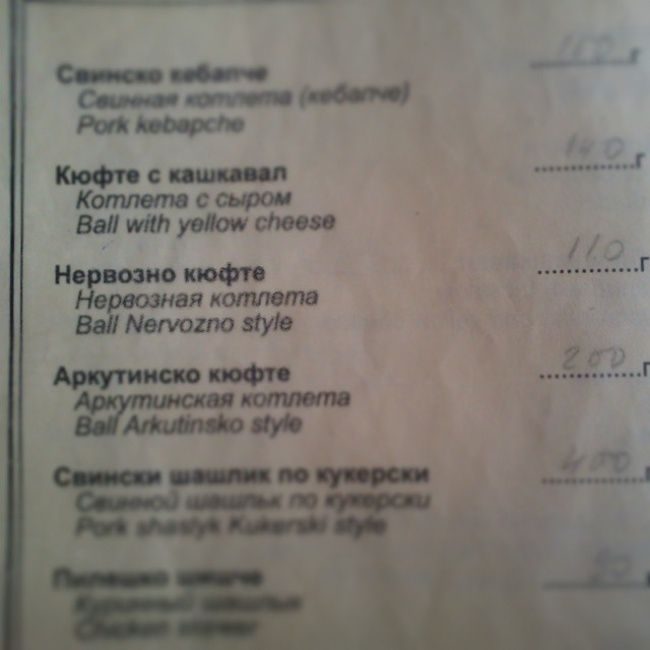 Свинско кебапче 150 г
Свинная котлета (кебапче)
Pork kebapche
Кюфте с кашкавал 140 г
Котлета с сыром
Ball with yellow cheese
Нервозно кюфте 110 г
Нервозная котлета
Ball Nervozno style
Аркутинско кюфте 200 г
Аркутинская котлета
Ball Arkutinsko style
Свински шашлик по кукерски 400
Свинной шашлык по кукерски
Pork shaslyk Kukerski style
Пилешко шишче
Куринный шашлык
Chicken